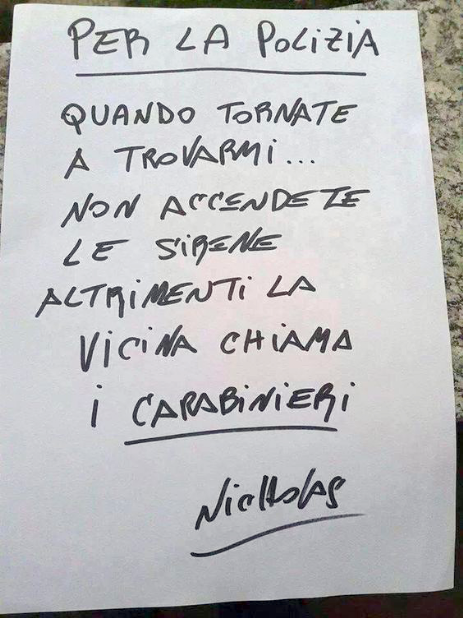 PER LA POLIZIA
QUANDO TORNATE
A TROVARMI...
NON ACCENDETE
LE SIRENE
ALTRIMENTI LA
VICINA CHIAMA
I CARABINIERI
NicHolas